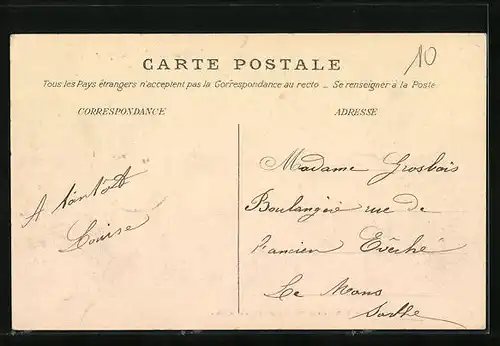 10
CARTE POSTALE
Tous les Pays étrangers n'acceptent pas la Correspondance au recto _ Se renseigner à la Poste
CORRESPONDANCE
ADRESSE
A tantôt
Louise
Madame Grosbois
Boulangerie rue de
l'ancien Évêché
Le Mans
Sarthe